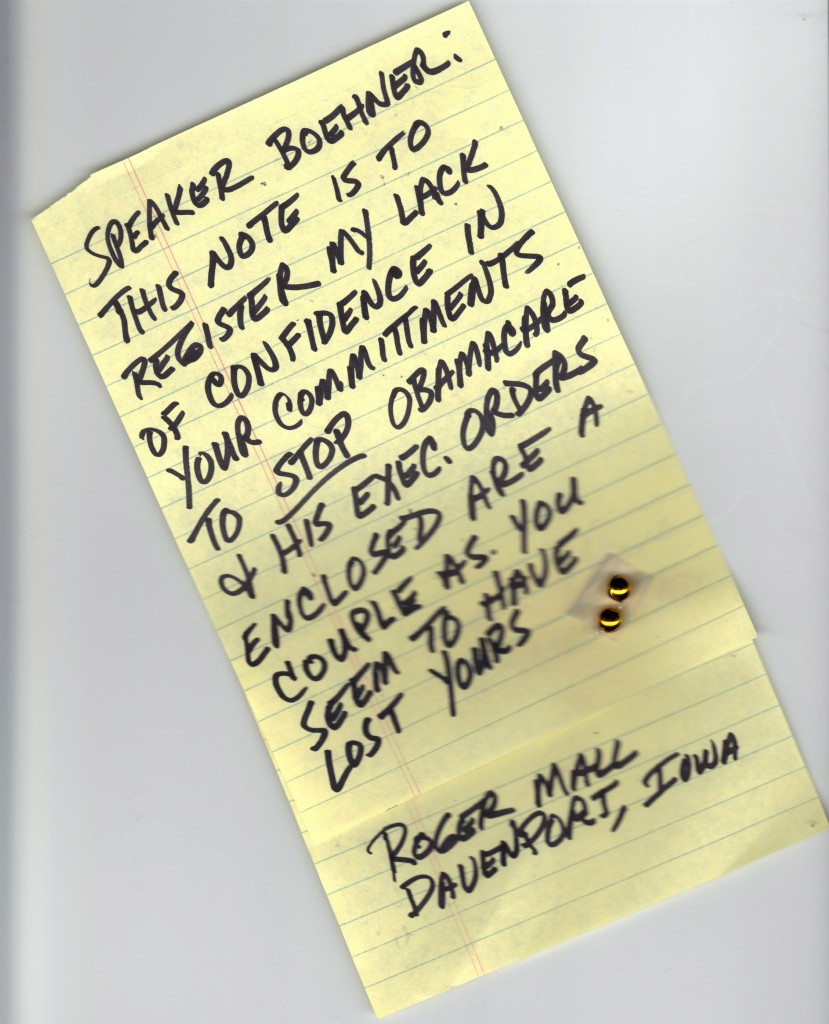 SPEAKER BOEHNER:
THIS NOTE IS TO
REGISTER MY LACK
OF CONFIDENCE IN
YOUR COMMITTMENTS
TO STOP OBAMACARE
& HIS EXEC. ORDERS
ENCLOSED ARE A
COUPLE AS. YOU
SEEM TO HAVE
LOST YOURS
ROGER MALL
DAVENPORT, IOWA